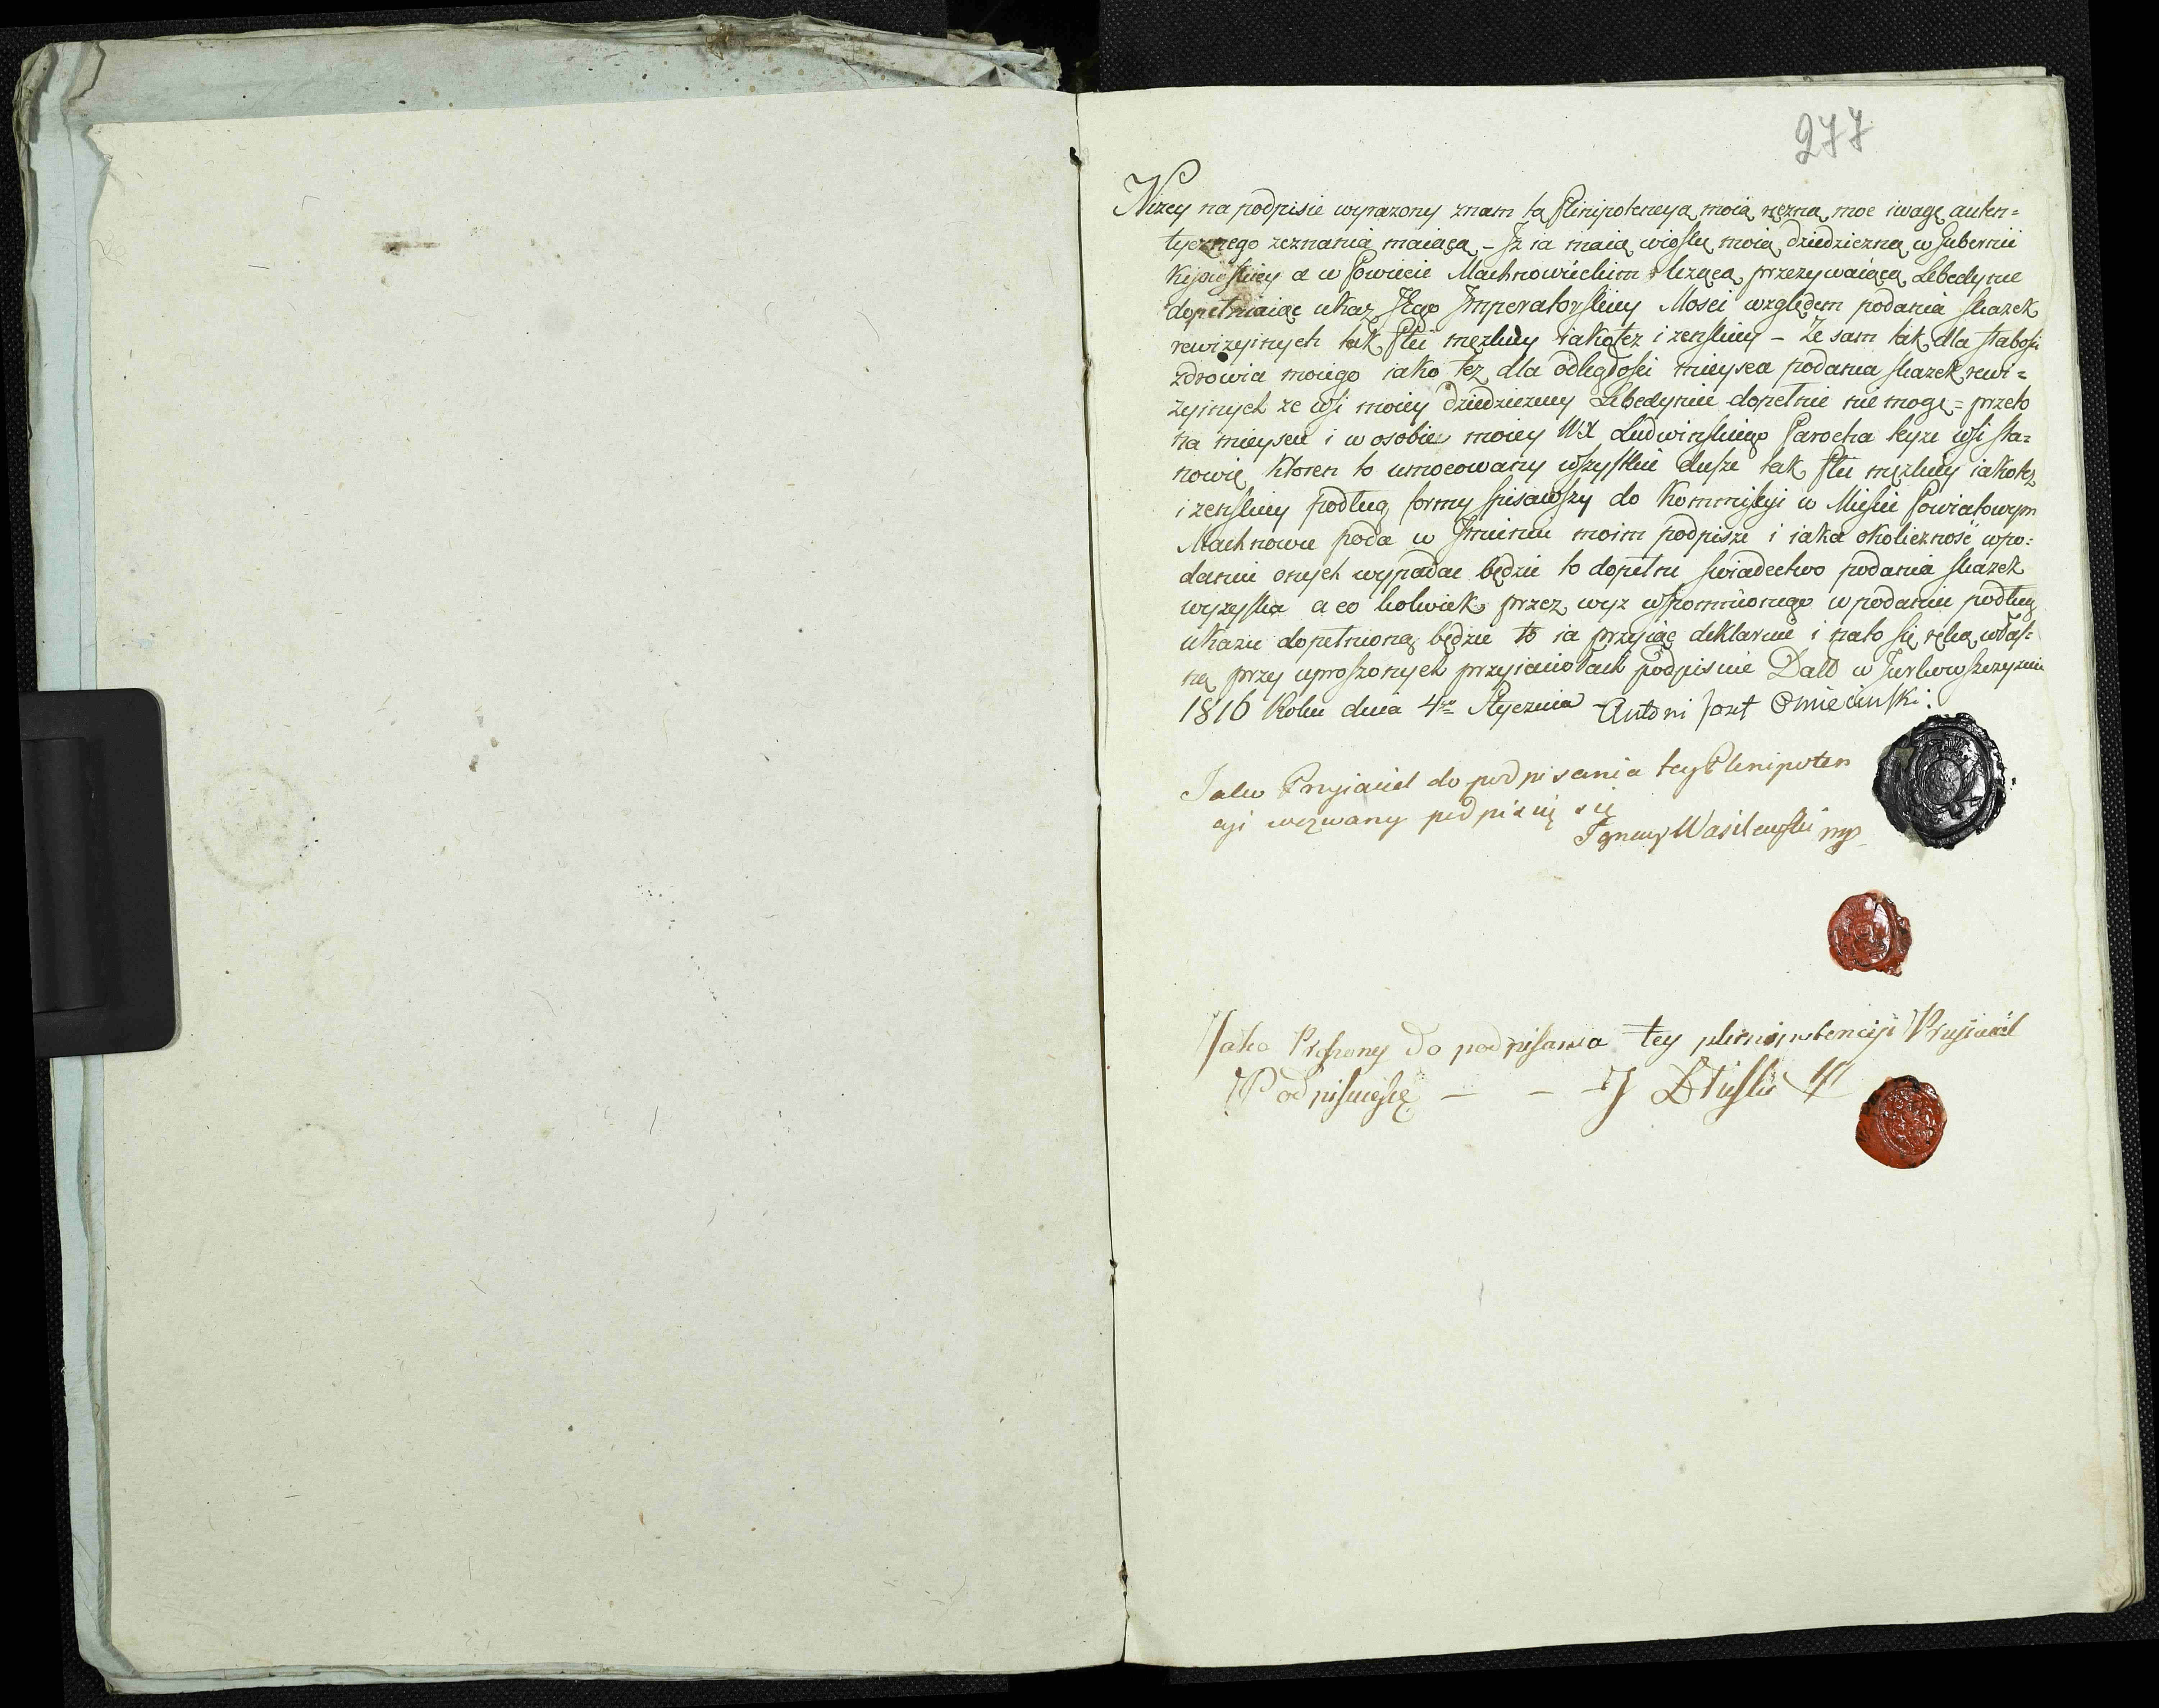 277
Niżey na podpisie wyrażony znam tą Plinipotencyą moią ręczną moc i wagę auten=
tycznego zeznania maiącą – Iż ia maią wioskę moią dziedziczną w Gubernii
Kijowskiey a w Powiecie Machnowieckim leżącą przezywaiącą Lebedynce
dopełniaiąc ukaz Jego Imperatorskiey Mości względem podania skazek
rewizyinych tak płci męzkiey iakotez i zenskiey – Ze sam tak dla słabości
zdrowia moiego iako tez dla odległości mieysca podania skazek rewi=
zyinych ze wsi moiey dziedziczney Lebedyniec dopełnić nie mogę = przeto
na mieyscu i w osobie moiey WX Ludwinskiego Parocha teyze wsi sta=
nowię ktoren to umocowany wszystkie dusze tak płci męzkiey iakotez
i zenskiey podług formy spisawszy do Kommissyi w Mieście Powiatowym
Machnowce poda w Imieniu moim podpisze i iaka okoliczność w po=
daniu onych wypadać będzie to dopełni swiadectwo podania skazek
wyzyska a co kolwiek przez wyz wspomnionego w podaniu podług
ukazu dopełnioną będzie to ia przyiąć deklaruie i na to się ręką włas=
ną przy uproszonych przyiaciołach podpisuie Datt w
1816 Roku dnia 4go Stycznia Antoni Józef Omieciński:
Jako Przyiaciel do podpisania tey Plenipoten
cyi wezwany podpisuię się
Ignacy Wasilewski mp
Jako Proszony do podpisania tey plenipotencyi Przyiaciel
Podpisuiesię – – J